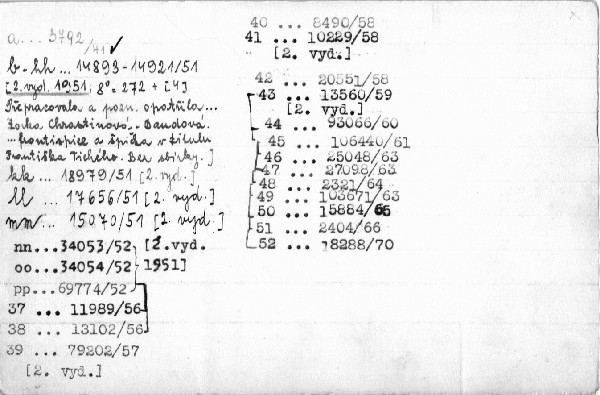 a... 3792/41 ✓
b-hh ... 14893-14921/51
[2. vyd. 1951; 8°. 272 + [4]
Přepracovala a pozn. opatřila...
Zorka Chrastinová-Baudová.
...frontispice a špička v titulu
Františka Tichého. Bez sbírky.]
kk... 18979/51 [2. vyd.]
ll ... 17656/51 [2. vyd.]
mm... 15070/51 [2. vyd.]
nn...34053/52 [2.vyd.
oo...34054/52 1951]
pp...69774/52
37 ... 11989/56
38 ... 13102/56
39 ... 79202/57
[2. vyd.]
40 ... 8490/58
41 ... 10229/58
[2. vyd.]
42 ... 20551/58
43 ... 13560/59
[2. vyd.]
44 ... 93066/60
45 ... 106440/61
46 ... 25048/63
47 ... 27098/63
48 ... 2321/64
49 ... 103671/63
50 ... 15884/65
51 ... 2404/66
52 ... 18288/70